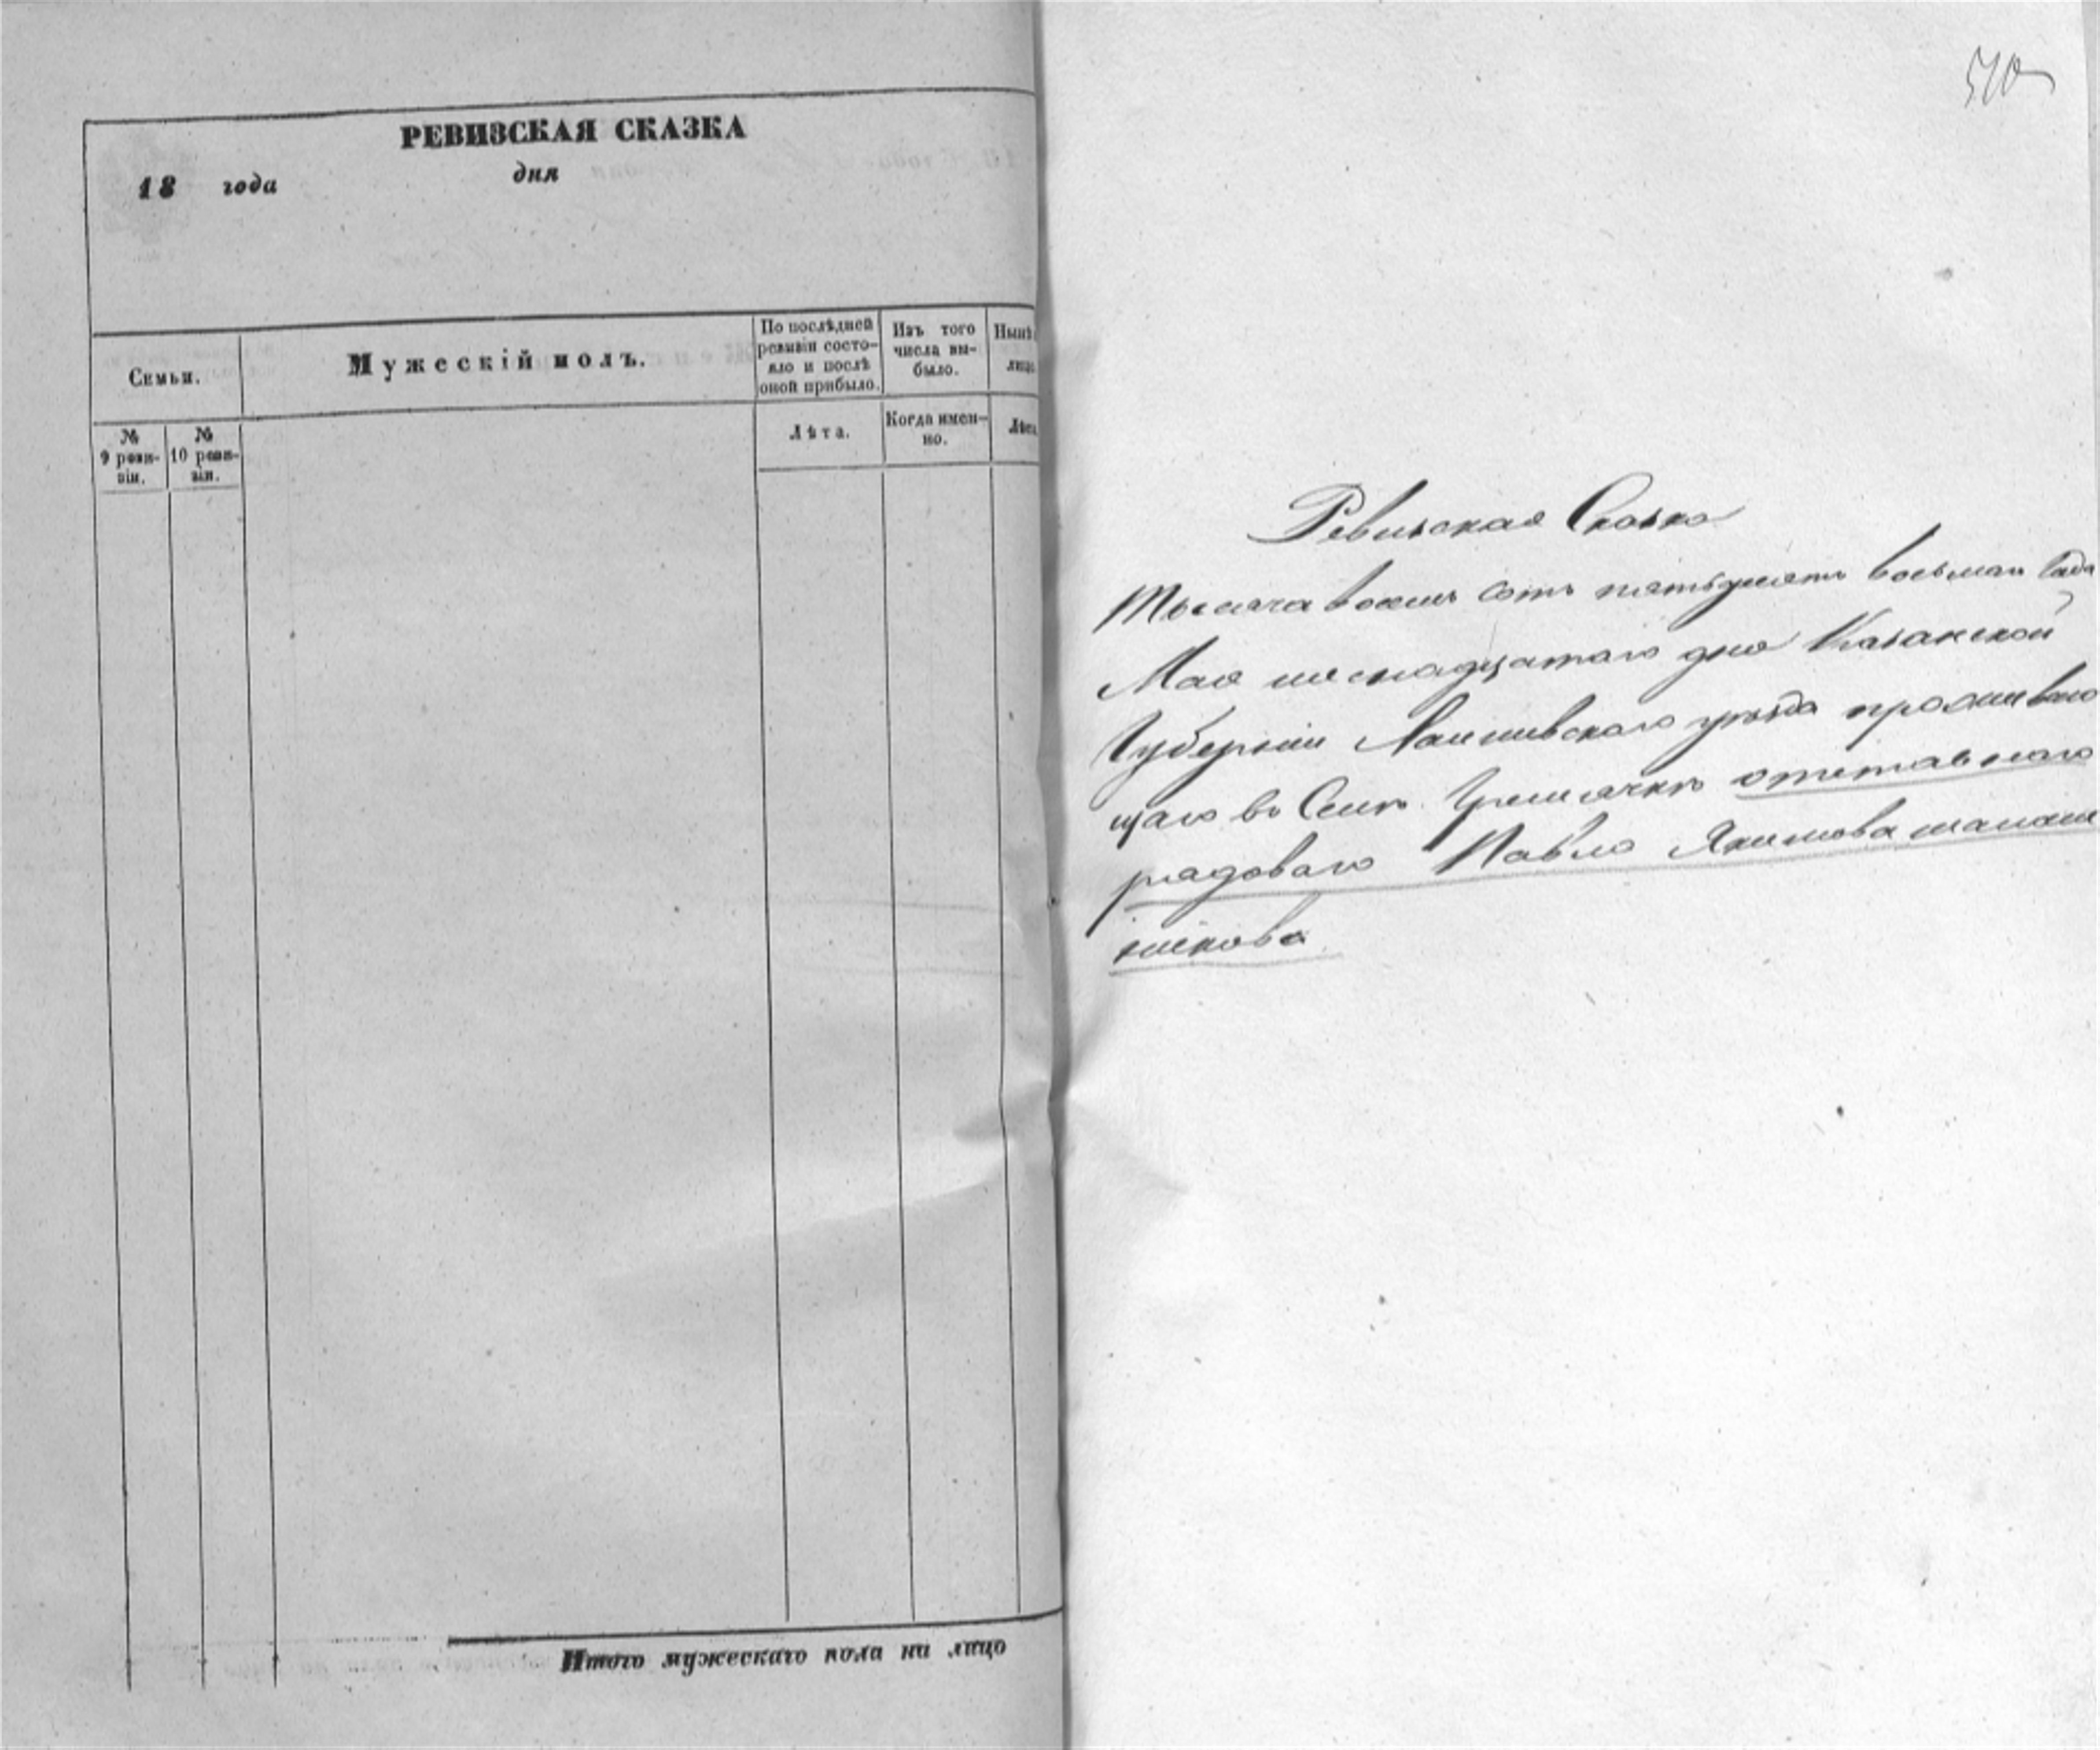 РЕВИЗСКАЯ СКАЗКА
18 года дня
Семьи.
Мужескій полъ.
По послѣдней
ревизіи состо-
яло и послѣ
оной прибыло.
Изъ того
числа вы-
было.
Нынѣ
лицо
№
9 реви-
зіи.
№
10 реви-
зіи.
Лѣта.
Когда имен-
но.
Лѣта
Итого мужескаго пола на лицо
510
Ревизская Сказка
Тысяча восемь сотъ пятьдесятъ восьмаго Года
Мая шеснадцатаго дня Казанской
Губерніи Лаишевскаго уѣзда проживаю
щаго въ Селѣ отставнаго
рядоваго Павла Якимова
никова